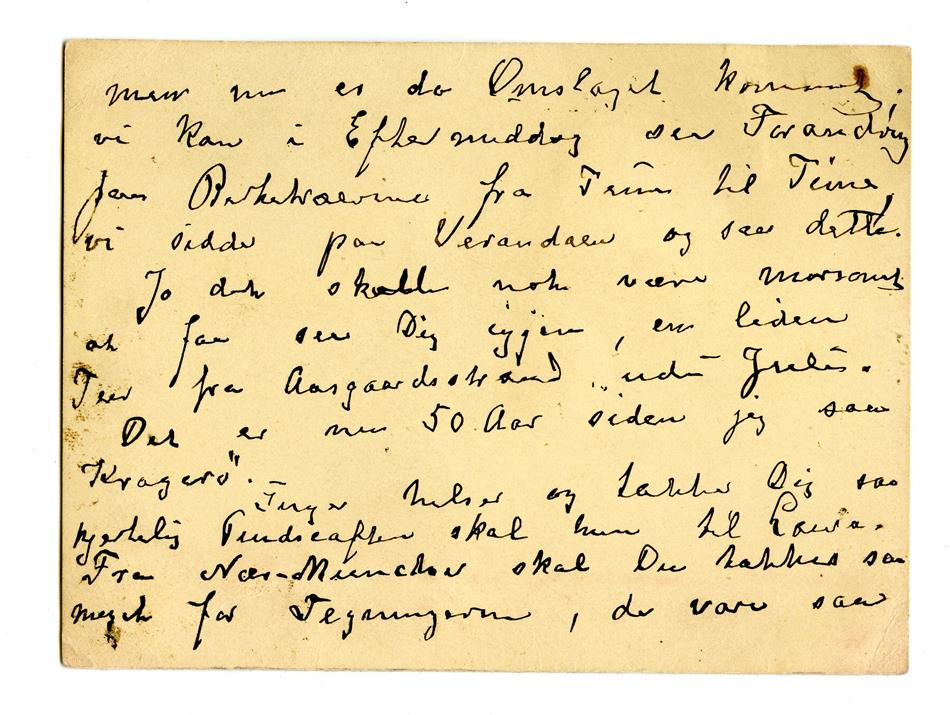 men nu er da Omslaget kommet,
vi kan i Eftermiddag see Forandring
paa Birketræerne fra Time til Time,
vi sidder paa Verandaen og saa dette.
Jo det skulle nok være morsomt
at faa see Dig igjen, en liden
Tour fra Aasgaardsstrand
Det er nu 50 Aar siden jeg saa
Kragerø".
Inger hilser og takker Dig saa
hjertelig Tirsdsaften skal hun til Laura.
Fra Næs-Muncher skal Du takkes saa
meget for Tegningerne, de vare saa